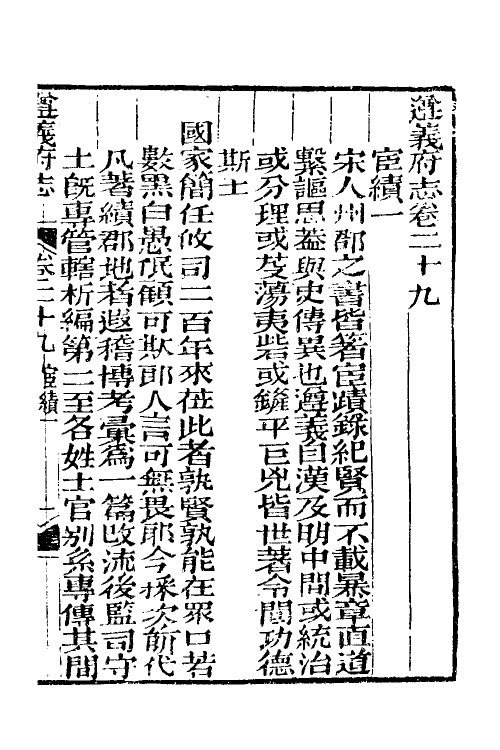 遵義府志卷二十九
宦績一
宋人州郡之書皆著宦蹟錄紀賢而不載暴章直道
繫謳思葢與史傳異也遵義自漢及明中間或統治
或分理或芟蕩夷砦或鏟平巨兇皆世著令聞功德
斯土
國家簡任攸司二百年來莅此者孰賢孰能在眾口若
數黑白愚氓顧可欺邪人言可無畏耶今採次前代
凡著績郡地者遐稽博考彙為一篇改流後監司守
土旣專管轄析編第二至各姓土官別系專傳其間
遵義府志 卷二十九 宦績一 一